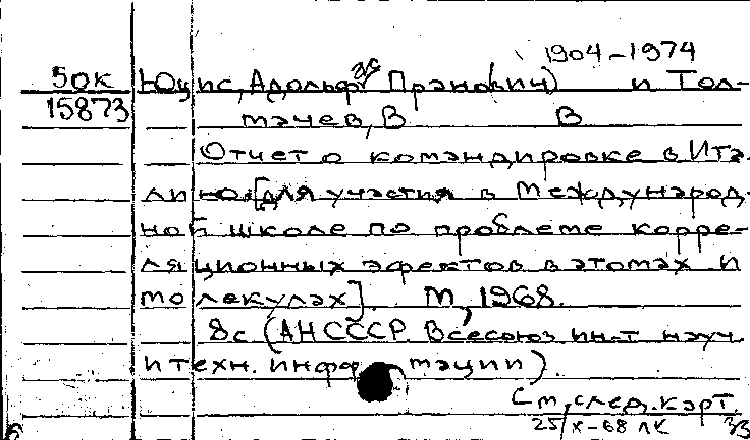 1904-1974
50к Юцис, Адольф ас Пран(ович) и Тол-
15873 мачев, В В
Отчет о командировке в Ита-
лию [для участия в Международ-
ной школе по проблеме корре-
ляционных эфектов в атомах и
молекулах]. М, 1968.
8с (АН СССР. Всесоюз. ин-т науч.
и техн. информации).
См, след. карт.
25/X-68 ЛК